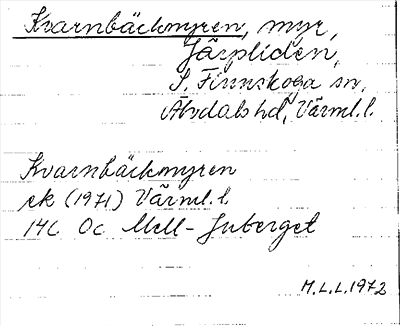 Kvarnbäckmyren, myr,
Järpliden,
S. Finnskoga sn,
Älvdals hd, Värml. l.
Kvarnbäckmyren
ek (1971) Värml. l.
14C 0c Mell-Juberget
M.L.L. 1972